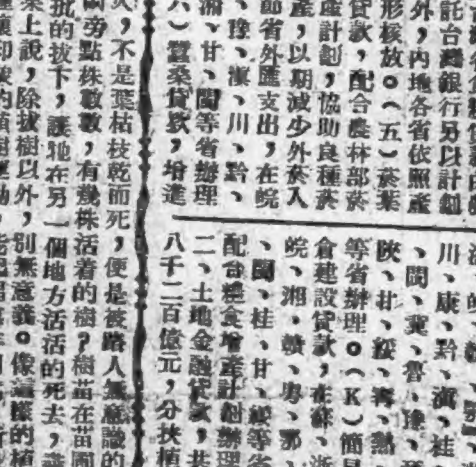 託台灣銀行另以計劃
外,內地各省依照產
形核放。(五)菸葉
貸款,配合農林部菸
產計劃,協助良種菸
產,以期減少外菸入
節省外匯支出,在皖
、豫、滇、川、黔、
湘、甘、閩等省辦理
六)蠶桑貸款,增進
川、康、黔、滇、桂
、閩、冀、魯、豫、
陝、甘、綏、青、熱
等省辦理。(K)簡易
倉建設貸款,在蘇、浙
皖、湘、贛、粵、鄂
、閩、桂、甘、綏等省
配合糧食增產計劃辦理
二、土地金融貸款,共
八千二百億元,分扶植
火,不是葉枯枝乾而死,便是被路人無意識的
旁點株數數,有幾株活着的樹?樹苗在苗圃
批的拔下,讓牠在另一個地方活活的死去,
上說,除拔樹以外,別無意義。像這樣的植